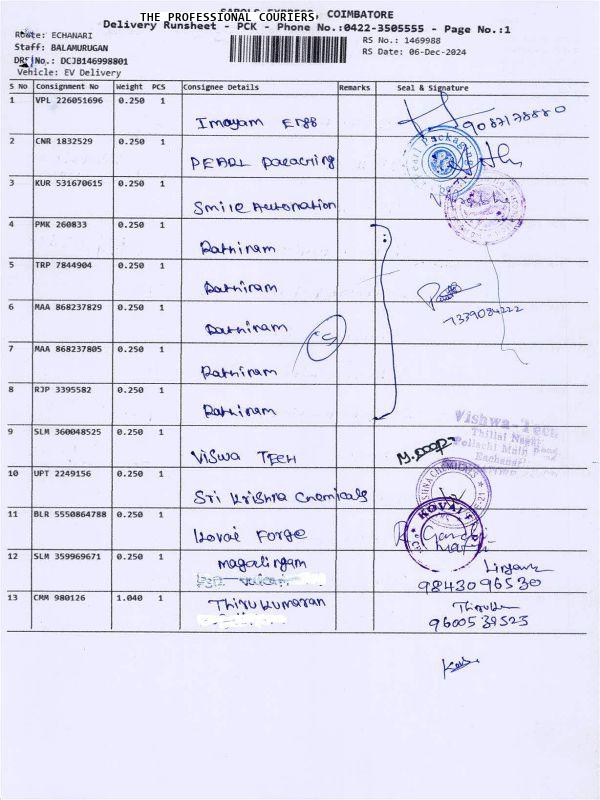 THE PROFESSIONAL COURIERS, COIMBATORE
Delivery Runsheet - PCK - Phone No.:0422-3505555 - Page No.:1
Route: ECHANARI
RS No.: 1469988
Staff: BALAMURUGAN
RS Date: 06-Dec-2024
DRS No.: DCJB146998801
Vehicle: EV Delivery
S No Consignment No Weight PCS Consignee Details Remarks Seal & Signature
1 VPL 226051696 0.250 1 Imayam Engg 9087178880
2 CNR 1832529 0.250 1 PEARL Packaging
Pearl Packaging
3 KUR 531670615 0.250 1 Smile Automation
4 PMK 260833 0.250 1 Rathinam
5 TRP 7844904 0.250 1 Rathinam
6 MAA 868237829 0.250 1 Rathinam
7339084222
7 MAA 868237805 0.250 1 Rathinam
8 RJP 3395582 0.250 1 Rathinam
9 SLM 360048525 0.250 1 Viswa TECH
Vishwa-Tech
Thillai Nagar
Pollachi Main Road
Eachanari
10 UPT 2249156 0.250 1 Sri Krishna Chemicals
11 BLR 5550864788 0.250 1 Kovai Forge
KOVAI F
12 SLM 359969671 0.250 1 magalingam
9843096530
13 CMM 980126 1.040 1 Thirukumaran
9600539523